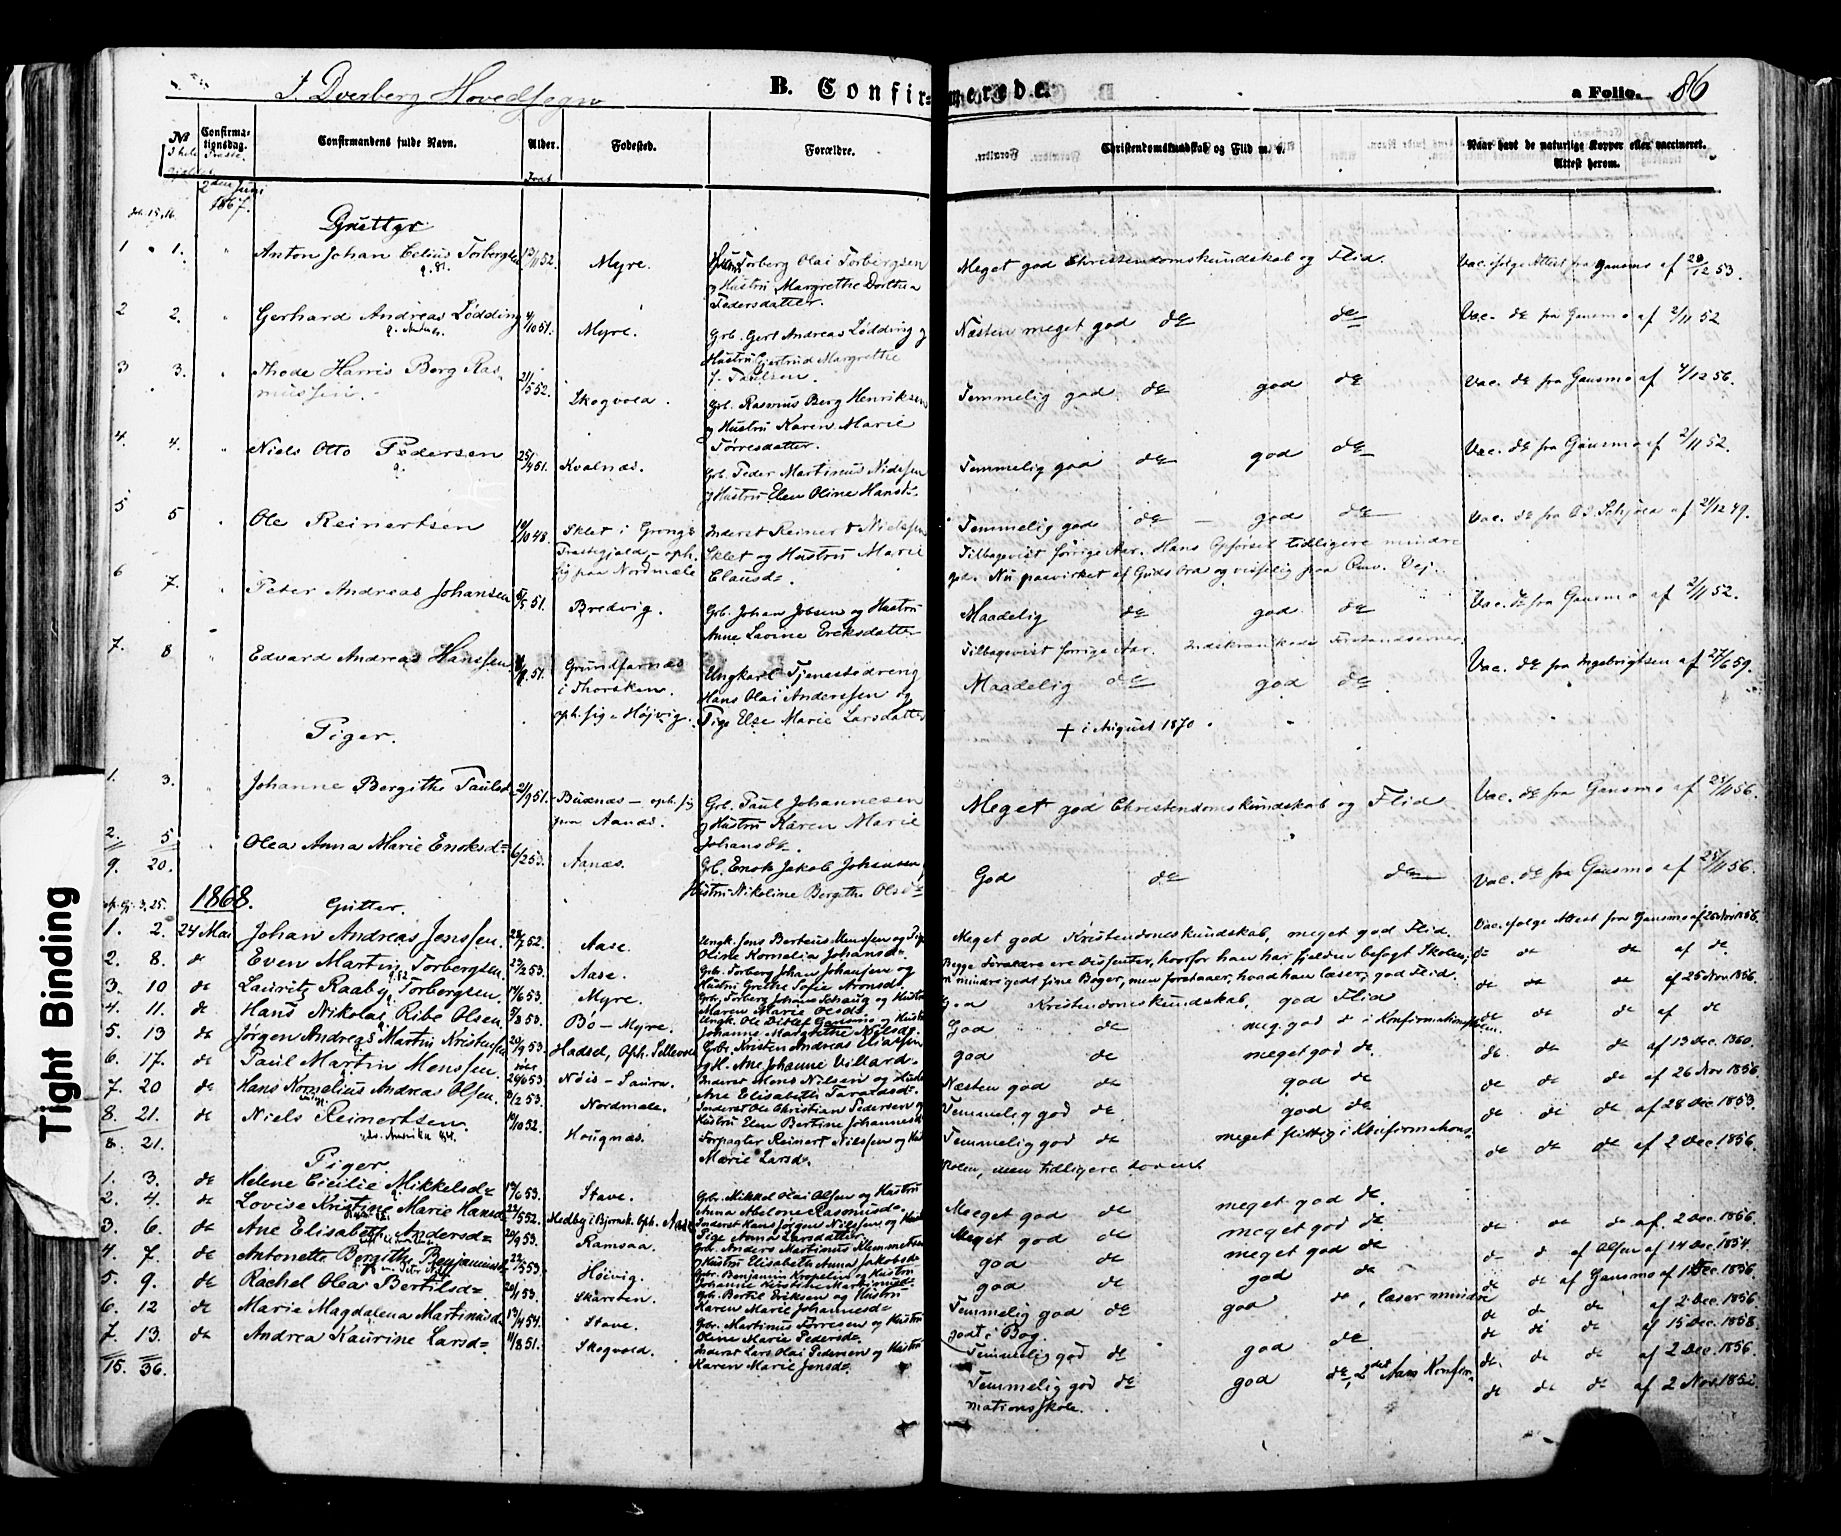 I Dverberg Hovedsogn B. Confirmerede. a Folio. 86
No Confirmationsdag. Confirmandens fulde Navn. Alder. Fødested. Forældre. Christendomskundskab og Flid m. v. Naar havt de naturlige Kopper eller vaccineret. Attest herom.
2den Juni 1867.
Gutter
1 1. Anton Johan Celius Torbergsen 13/1 52. Myre. Torberg Olai Torbergsen Meget god Christendomskundskab og Flid. Vac. ifølge Attest fra Gausmo af 20/12 53.
og Hustru Margrethe Dorthea
Pedersdatter.
2 2. Gerhard Andreas Lødding 4/10 51. Myre. Grb. Gert Andreas Lødding og Næsten meget god do do Vac. do fra Gausmo af 2/11 52
Hustru Gjertrud Margrethe
f. Paulsen.
3 3. Thode Harris Berg Rasmussen. 21/5 52. Skogvold. Grb. Rasmus Berg Henriksen Temmelig god do god do Vac. do fra Gausmo af 4/12 56.
og Hustru Karen Marie
Tørresdatter.
4. 4. Niels Otto Pedersen 25/4 51. Kvalnæs. Grb. Peder Martinus Nielssen Temmelig god do god do Vac. do fra Gausmo af 2/11 52.
og Hustru Elen Oline Hansd.
5 5 Ole Reinertsen 14/10 48. Sklet i Grong Inderst Reinert Nielssen Temmelig god do god do Vac. do fra af 21/12 49.
Præstegjeld, oph. Sklet og Hustru Marie Tilbagevist forrige Aar. Hans Opførsel tidligere mindre
sig paa Nordmele Clausd. god. Nu paavirket af Guds Ord og
6 7. Peter Andreas Johansen 5/5 51. Bredvig. Grb. Johan Jobsen og Hustru Maadelig do god do Vac. do fra Gausmo af 2/11 52.
Anne Lavine Ereksdatter Tilbagevist forrige Aar.
7. 8 Edvard Andreas Hanssen 51. Grundfarnæs Ungkarl Tjenestedreng Maadelig do god do Vac. do fra Ingebrigtsen af 27/6 59.
i Thorsken. Hans Olai Anderssen og
oph. sig i Højvig. Pige Else Marie Larsdatter + i August 1870.
Piger.
1. 3. Johanne Bergithe Paulsd 21/9 51. Buknæs - oph. sig Grb. Paul Johannesen Meget god Christendomskundskab og Flid Vac. do fra Gausmo af 25/11 56.
paa Aanæs. og Hustru Karen Marie
Johansd.
2. 5 Olea Anna Marie Enoksd 6/2 53. Aanæs. Gb. Enok Jakob Johansen God do do Vac. do fra Gausmo af 25/11 56.
9. 20. Hustru Nikoline Bergithe Olsd
1868. Gutter.
1. 2. 24 Mai Johan Andreas Jenssen. 28/7 52. Aase. Ungk. Jens Berteus Monssen og Pige Meget god Kristendomskundskab, meget god Flid. Vac. ifølge Attest fra Gausmo af 26 Nov 1856.
Oline Kornelia Johansd
2. 8. do Even Martin Torbergsen. 23/2 53. Aase. Grb. Torberg Johan Johansen og Begge Forældre ere Dissenter, hvorfor han har sjelden besøgt Skolen; do do do af do
Hustru Grethe Sofie Aronsd. mindre godt sine Bøger, men forstaaer, hvad han læser; god Flid.
3. 10 do Lauritz Raaby Torbergsen. 14/6 53. Myre. Grb. Torberg Johan Schaug og Hustru God Kristendomskundskab, god Flid do do do af 25 Nov 1856.
Maren Marie Olsd.
4. 11. do Hans Nikolai Ribe Olsen 5/8 53. Bø - Myre. Ungk. Ole Ditlef Gausmo og Hustru God do meg. god do i Konfirmationsskolen. do do do af do
Johanne Margrethe Nilsd.
5. 13 do Jørgen Andreas Martin Kristensen 20/9 53. Hadsel, Oph. Sellevoll Grb. Kristen Andreas Eliassen god do meget god do. do do do af 13 Dec. 1860.
og H. Ane Johanne Villard.
6. 17. do Paul Martin Monssen. 26/6 53 Nøis - Saura. Inderst Mons Nilsen og Hustru Næsten god do god do do do do af 26 Nov 1856
Ane Elisabeth
7. 20 do Hans Kornelius Andreas Olsen. 8/2 53. Nordmele. Inderst Ole Christian Pedersen og Temmelig god do god do do do do af 28 Dec 1853.
Hustru Elen Bertine Johannesd
8. 21. do Niels Reinertsen. 19/10 52. Hougnæs. Forpagter Reinert Nilssen og Hust Temmelig god do meget flittig i Konfirmations- do do do af 2 Dec. 1856.
8. 21. Marie Larsd. skolen, men tidligere doven
Piger.
1. 3. do Helene Cecilie Mikkelsd 17/6 53. Stave. Grb. Mikkel Olai Olsen og Hustru Meget god do meget god do. do do do af 2 Dec. 1856.
Anna Abelone Rasmusd.
2. 4. do Lovise Kristine Marie Hansd 22/5 52. Medby i Bjørnsk. Oph. Aase Inderst Hans Jørgen Nilssen og Meget god do meget god do. do d af Olsen af 14 Dec. 1854.
Pige Anna Larsdatter
3. 6. do Ane Elisabeth Andersd 20/9 53. Ramsaa. Grb. Anders Martinus Klemmetsen god do meget god do do do af Gausmo af 1 Dec. 1856.
og Hustru Elisabeth Anna Jakobsd
4. 7. do Antonette Bergithe Benjaminsd 22/5 53 Høivig. Grb. Benjamin Kropelin og Hustru god do god do do do do af 2 Dec. 1856
Johanne Kristine Martinusd
5. 9. do Rachel Olea Bertilsd 20/1 53. Skarsten. Grb. Bertil Eriksen og Hustru Temmelig god do god do, læser mindre do do do af 15 Dec. 1858.
Karen Marie Johannesd godt i Bog.
6. 12 do Marie Magdalena Martinusd 13/4 54. Stave. Grb. Martinus Tørresen og Hustru Temmelig god do god do do. do do af 2 Dec. 1856.
Oline Marie Pedersd
7. 13. do Andrea Kaurine Larsd 11/8 51. Skogvold. Inderst Lars Olai Pedersen og Hustru Temmelig god do god do, 2det Aars Konfir- do do do af 2 Nov. 1852.
15. 36. Karen Marie Jensd mationsskole.
Tight Binding